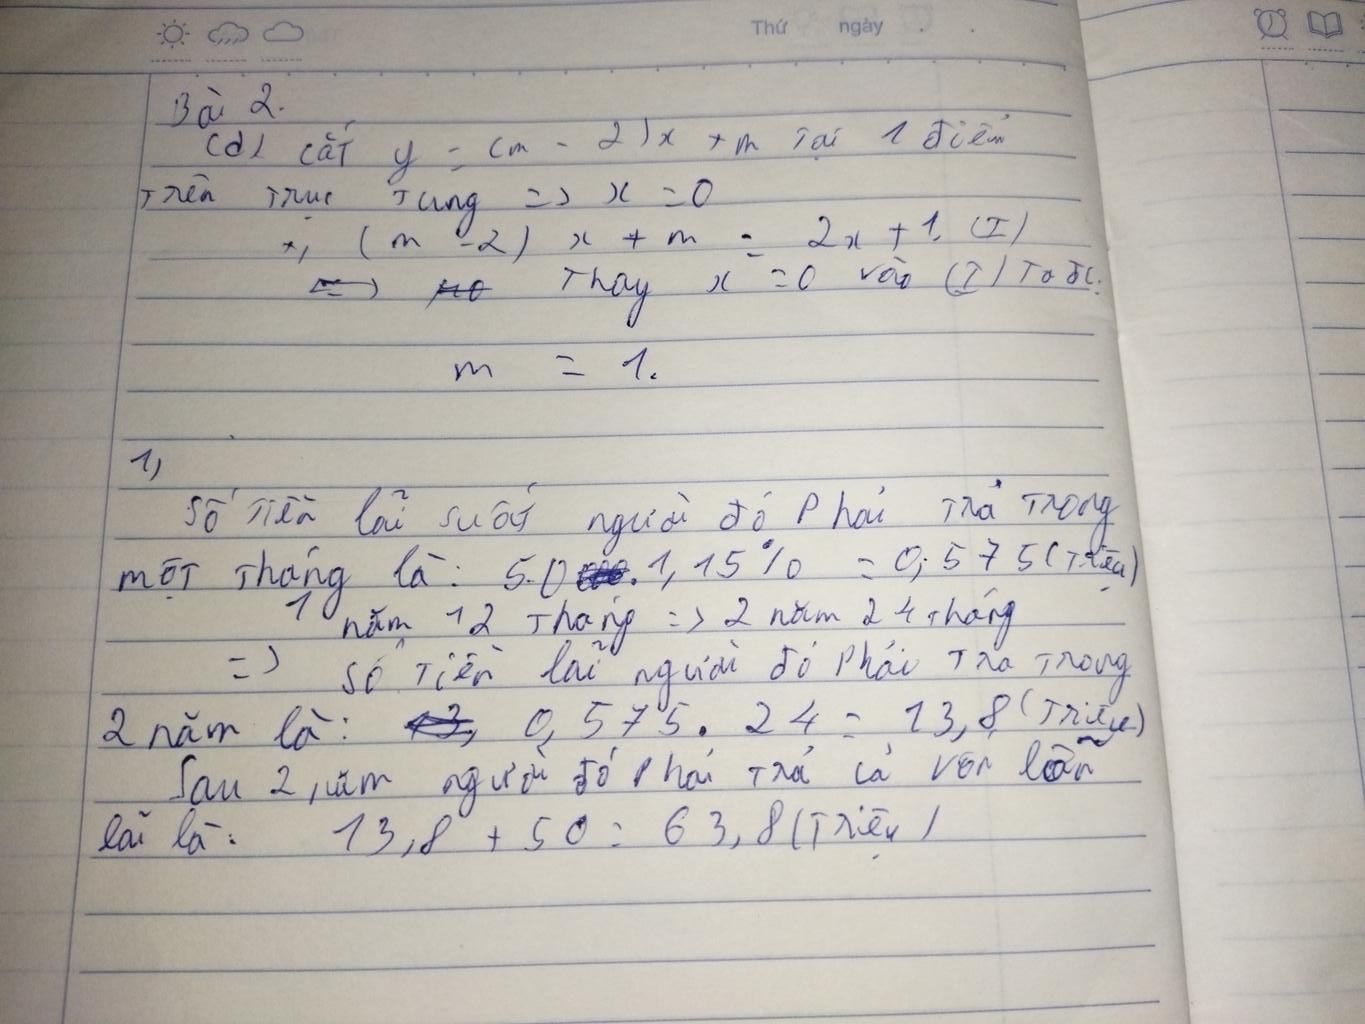 Thứ ngày
Bài 2.
(d) cắt y = (m - 2)x + m tại 1 điểm
trên trục tung => x = 0
*, (m - 2) x + m = 2x + 1. (I)
Thay x = 0 vào (I) Ta đc:
m = 1.
1,
Số tiền lãi suất người đó phải trả trong
một tháng là: 50 . 1,15% = 0,575 (triệu)
1 năm 12 tháng => 2 năm 24 tháng
=> số tiền lãi người đó phải trả trong
2 năm là: 0,575 . 24 = 13,8 (triệu)
Sau 2 năm người đó phải trả cả vốn lẫn
lãi là: 13,8 + 50 = 63,8 (triệu)